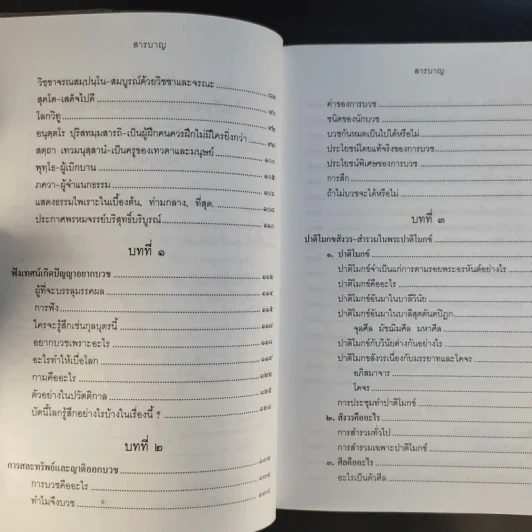 สารบาญ
วิชฺชาจรณสมฺปนฺโน-สมบูรณ์ด้วยวิชชาและจรณะ
สุคโต-เสด็จไปดี
โลกวิทู
อนุตฺตโร ปุริสทมฺมสารถิ-เป็นผู้ฝึกคนควรฝึกไม่มีใครยิ่งกว่า
สตฺถา เทวมนุสฺสานํ-เป็นครูของเทวดาและมนุษย์ ๑๐๐
พุทฺโธ-ผู้เบิกบาน ๑๐๕
ภควา-ผู้จำแนกธรรม ๑๐๖
แสดงธรรมไพเราะในเบื้องต้น, ท่ามกลาง, ที่สุด ๑๐๘
ประกาศพรหมจรรย์บริสุทธิ์บริบูรณ์ ๑๑๐
บทที่ ๑
ฟังเทศน์เกิดปัญญาอยากบวช ๑๑๕
ผู้ที่จะบรรลุมรรคผล
การฟัง
ใครจะรู้สึกเช่นกุลบุตรนี้
อยากบวชเพราะอะไร
อะไรทำให้เบื่อโลก
กามคืออะไร
ตัวอย่างในปวัตติกาล
บัดนี้โลกรู้สึกอย่างไรบ้างในเรื่องนี้ ?
บทที่ ๒
การสละทรัพย์และญาติออกบวช
การบวชคืออะไร
ทำไมจึงบวช
สารบาญ
ค่าของการบวช
ชนิดของนักบวช
บวชกันหมดเป็นไปได้หรือไม่
ประโยชน์โดยแท้จริงของการบวช
ประโยชน์พิเศษของการบวช
การสึก
ถ้าไม่บวชจะได้หรือไม่
บทที่ ๓
ปาติโมกขสังวร-สำรวมในพระปาติโมกข์
๑. ปาติโมกข์
ปาติโมกข์จำเป็นแก่การตามรอยพระอรหันต์อย่างไร
ปาติโมกข์คืออะไร
ปาติโมกข์อันมาในบาลีวินัย
ปาติโมกข์อันมาในบาลีสุตตันตปิฎก
จุลศีล มัชฌิมศีล มหาศีล
ปาติโมกข์กับวินัยต่างกันอย่างไร
ปาติโมกขสังวรเนื่องกับมรรยาทและโคจร
อภิสมาจาร
โคจร
การประชุมทำปาติโมกข์
๒. สังวรคืออะไร
การสำรวมทั่วไป
การสำรวมเฉพาะปาติโมกข์
๓. ศีลคืออะไร
อะไรเป็นตัวศีล